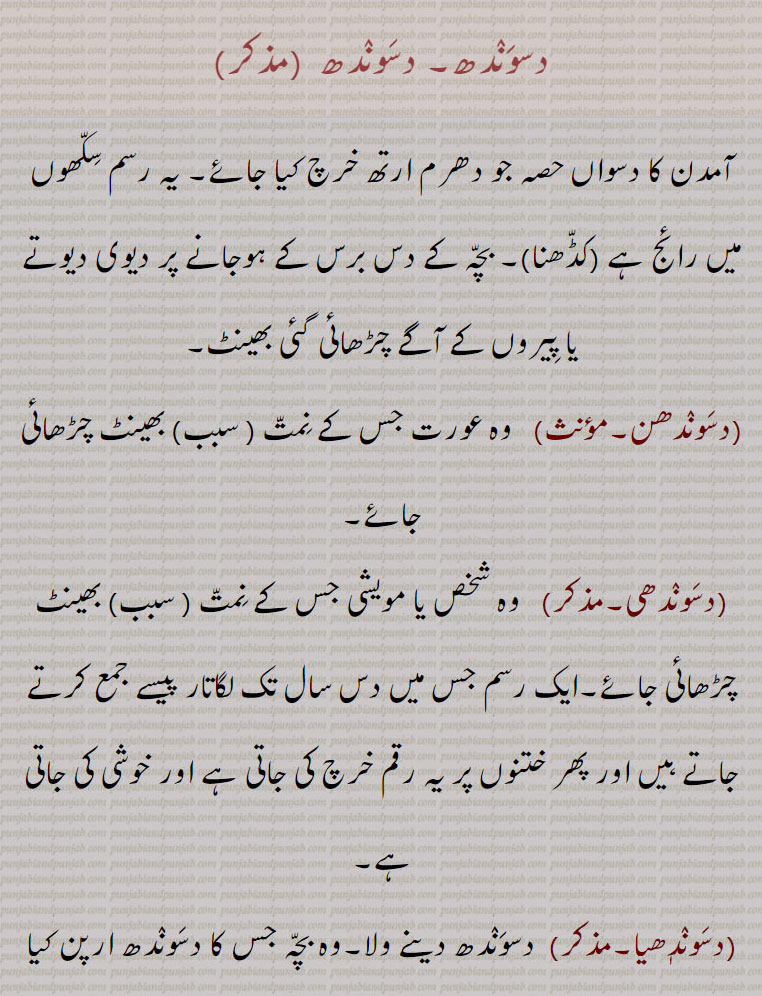 دسوَنْدھ۔ دسَونْدھ (مذکر)
آمدن کا دسواں حصہ جو دھرم ارتھ خرچ کیا جائے۔ یہ رسم سِکّھوں
میں رائج ہے (کڈّھنا)۔ بچّہ کے دس برس کے ہوجانے پر دیوی دیوتے
یا پِیروں کے آگے چڑھائی گئی بھینٹ۔
(دسَونْدھن۔مؤنث) وہ عورت جس کے نِمتّ ( سبب) بھینٹ چڑھائی
جائے۔
(دسَونْدھی۔مذکر) وہ شخص یا مویشی جس کے نِمتّ ( سبب) بھینٹ
چڑھائی جائے۔ایک رسم جس میں دس سال تک لگاتار پیسے جمع کرتے
جاتے ہیں اور پھر ختنوں پر یہ رقم خرچ کی جاتی ہے اور خوشی کی جاتی
ہے۔
(دسَونْدِھیا۔مذکر) دسوَنْدھ دینے ولا۔وہ بچّہ جس کا دسَونْدھ ارپن کیا